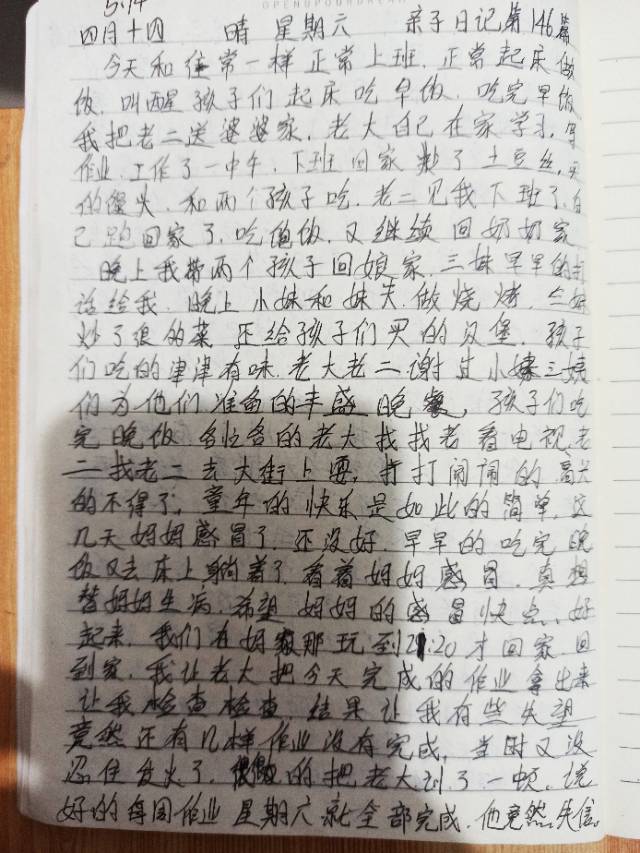 5.14
OPENUPYOURDREAM
四月十四 晴 星期六 亲子日记第146篇
今天和往常一样正常上班.正常起床做
饭.叫醒孩子们起床吃早饭.吃完早饭
我把老二送婆婆家.老大自己在家学习,写
作业.工作了一中午.下班回家炒了土豆丝,买
的馒头.和两个孩子吃.老二见我下班了,自
己跑回家了.吃饱饭.又继续回奶奶家
晚上我带两个孩子回娘家.三妹早早的打
话给我.晚上小妹和妹夫.做烧烤.三妹
炒了很的菜 还给孩子们买的汉堡.孩子
们吃的津津有味.老大老二谢过小姨三姨
们为他们准备的丰盛晚餐,孩子们吃
完晚饭.各忙各的老大找找老看电视,老
二找老二去大街上耍,打打闹闹的高兴
的不得了,童年的快乐是如此的简单,这
几天妈妈感冒了.还没好.早早的吃完晚
饭又去床上躺着了.看着妈妈感冒.真想
替妈妈生病.希望妈妈的感冒快点、好
起来.我们在妈家那玩到21:20才回家.回
到家.我让老大把今天完成的作业拿出来
让我检查检查.结果让我有些失望
竟然还有几样作业没有完成,当时又没
忍住发火了.的把老大训了一顿.说
好的每周作业星期六就全部完成.他竟然.失信.